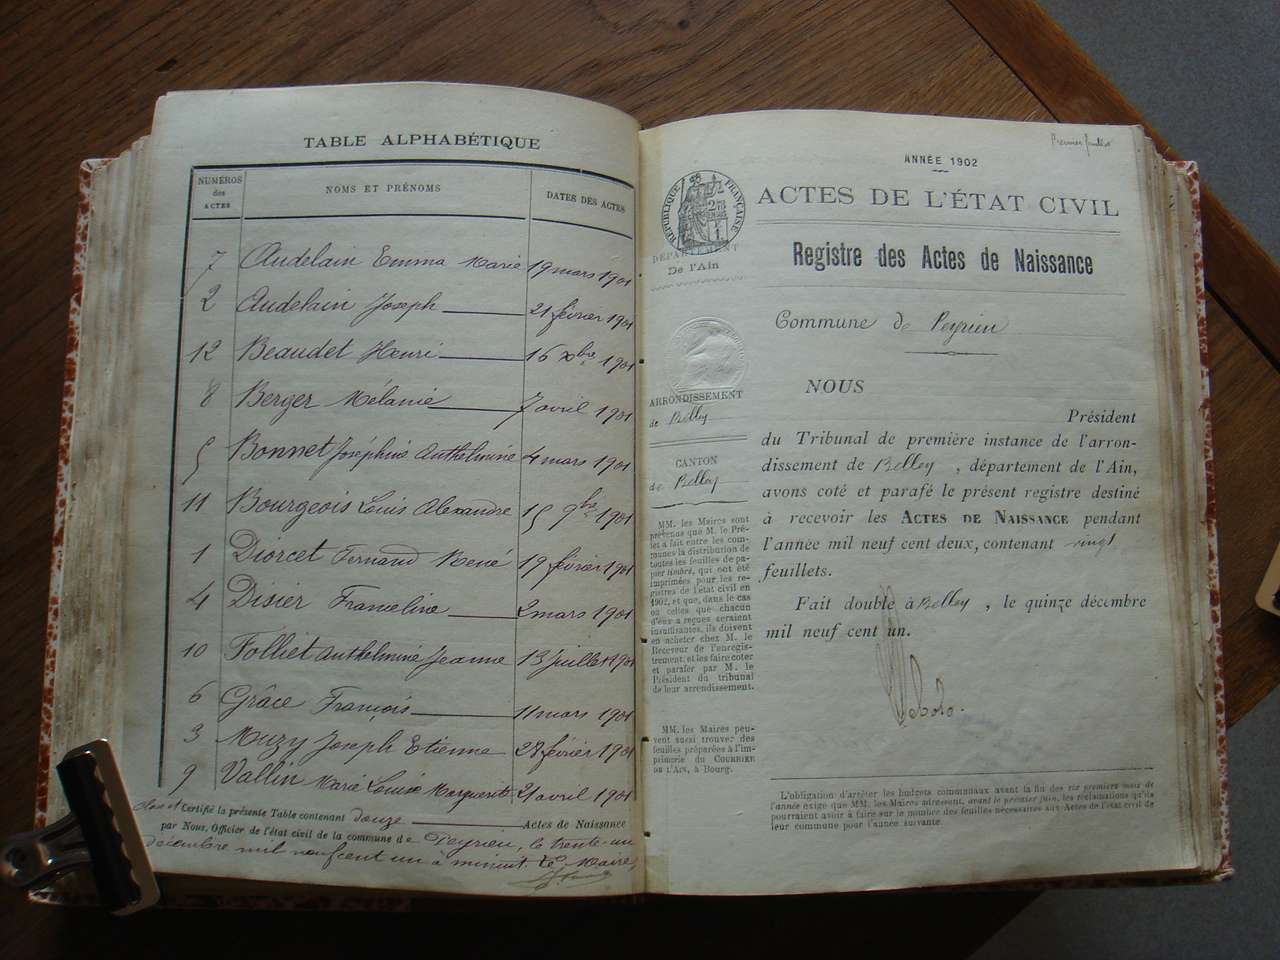 TABLE ALPHABÉTIQUE
NUMÉROS des ACTES
NOMS ET PRÉNOMS
DATES DES ACTES
7 Audelain Emma Marie 19 mars 1901
2 Audelain Joseph 21 février 1901
12 Beaudet Henri 16 xbre 1901
8 Berger Mélanie 7 avril 1901
5 Bonnet Joséphine Anthelmine 4 mars 1901
11 Bourgeois Louis Alexandre 15 9bre 1901
1 Diorcet Fernand René 19 février 1901
4 Disier Franceline 2 mars 1901
10 Folliet Anthelmine Jeanne 13 juillet 1901
6 Grâce François 11 mars 1901
3 Muzy Joseph Etienne 28 février 1901
9 Vallin Marie Louise Marguerite 21 avril 1901
Clos et Certifié la présente Table contenant douze Actes de Naissance
par Nous, Officier de l'état civil de la commune de Peyrieu, le trente-un
décembre mil neuf cent un à minuit. Le Maire,
Premier feuillet
ANNÉE 1902
ACTES DE L'ÉTAT CIVIL
Registre des Actes de Naissance
Commune de Peyrieu
RÉPUBLIQUE FRANÇAISE
DÉPARTEMENT
De l'Ain
ARRONDISSEMENT
de Belley
CANTON
de Belley
MM. les Maires sont
prévenus que M. le Pré-
fet a fait entre les com-
munes la distribution de
toutes les feuilles de pa-
pier timbré, qui ont été
imprimées pour les re-
gistres de l'état civil en
1902, et que, dans le cas
où celles que chacun
d'eux a reçues seraient
insuffisantes, ils doivent
en acheter chez M. le
Receveur de l'enregis-
trement, et les faire coter
et parafer par M. le
Président du tribunal
de leur arrondissement.
MM. les Maires peu-
vent aussi trouver des
feuilles préparées à l'im-
primerie du COURRIER
DE L'AIN, à Bourg.
NOUS
Président
du Tribunal de première instance de l'arron-
dissement de Belley, département de l'Ain,
avons coté et parafé le présent registre destiné
à recevoir les ACTES DE NAISSANCE pendant
l'année mil neuf cent deux, contenant vingt
feuillets.
Fait double à Belley, le quinze décembre
mil neuf cent un.
L'obligation d'arrêter les budgets communaux avant la fin des six premiers mois de
l'année exige que MM. les Maires adressent, avant le premier juin, les réclamations qu'ils
pourraient avoir à faire sur le nombre des feuilles nécessaires aux Actes de l'état civil de
leur commune pour l'année suivante.